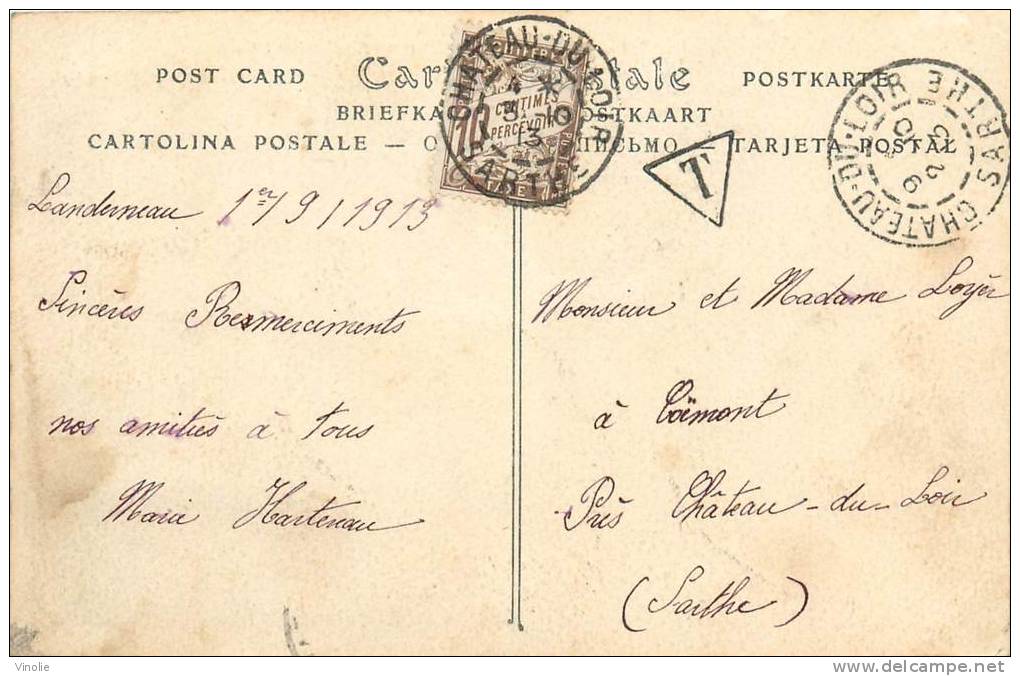 POST CARD
POSTKARTE
CARTOLINA POSTALE
TARJETA POSTAL
CHATEAU-DU-LOIR
SARTHE
10
CENTIMES
A
PERCEVOIR
T
CHATEAU-DU-LOIR
SARTHE
Landerneau 1er/9/1913
Sincères Remerciments
nos amitiés à tous
Marie
Monsieur et Madame Loyer
à Coëmont
Près Château-du-Loir
(Sarthe)
Vinolie
http://www.delcampe.net